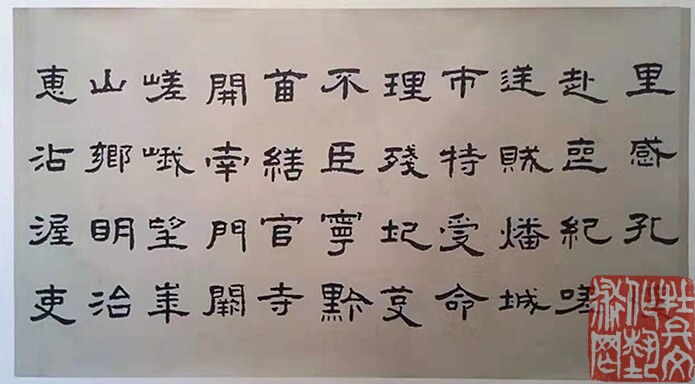 里感孔
赴喪紀嗟
逆賊燔城
市特受命
理殘圮芟
不臣寧黔
首繕官寺
開南門闕
嵯峨望崋
山鄉明治
惠沾渥吏